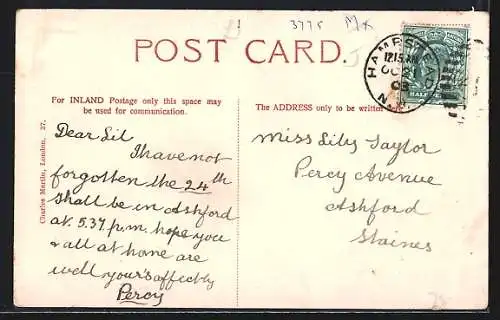 3775
POST CARD.
HAMPSTEAD
12.15 AM
OC 21
N.W
HALF
For INLAND Postage only this space may
be used for communication.
The ADDRESS only to be written
Charles Martin, London. 37.
Dear Lil
I have not
forgotten the 24th
shall be in Ashford
at 5.37 p.m. hope you
& all at home are
well your's affectly
Percy
Miss Lily Taylor
Percy Avenue
Ashford
Staines